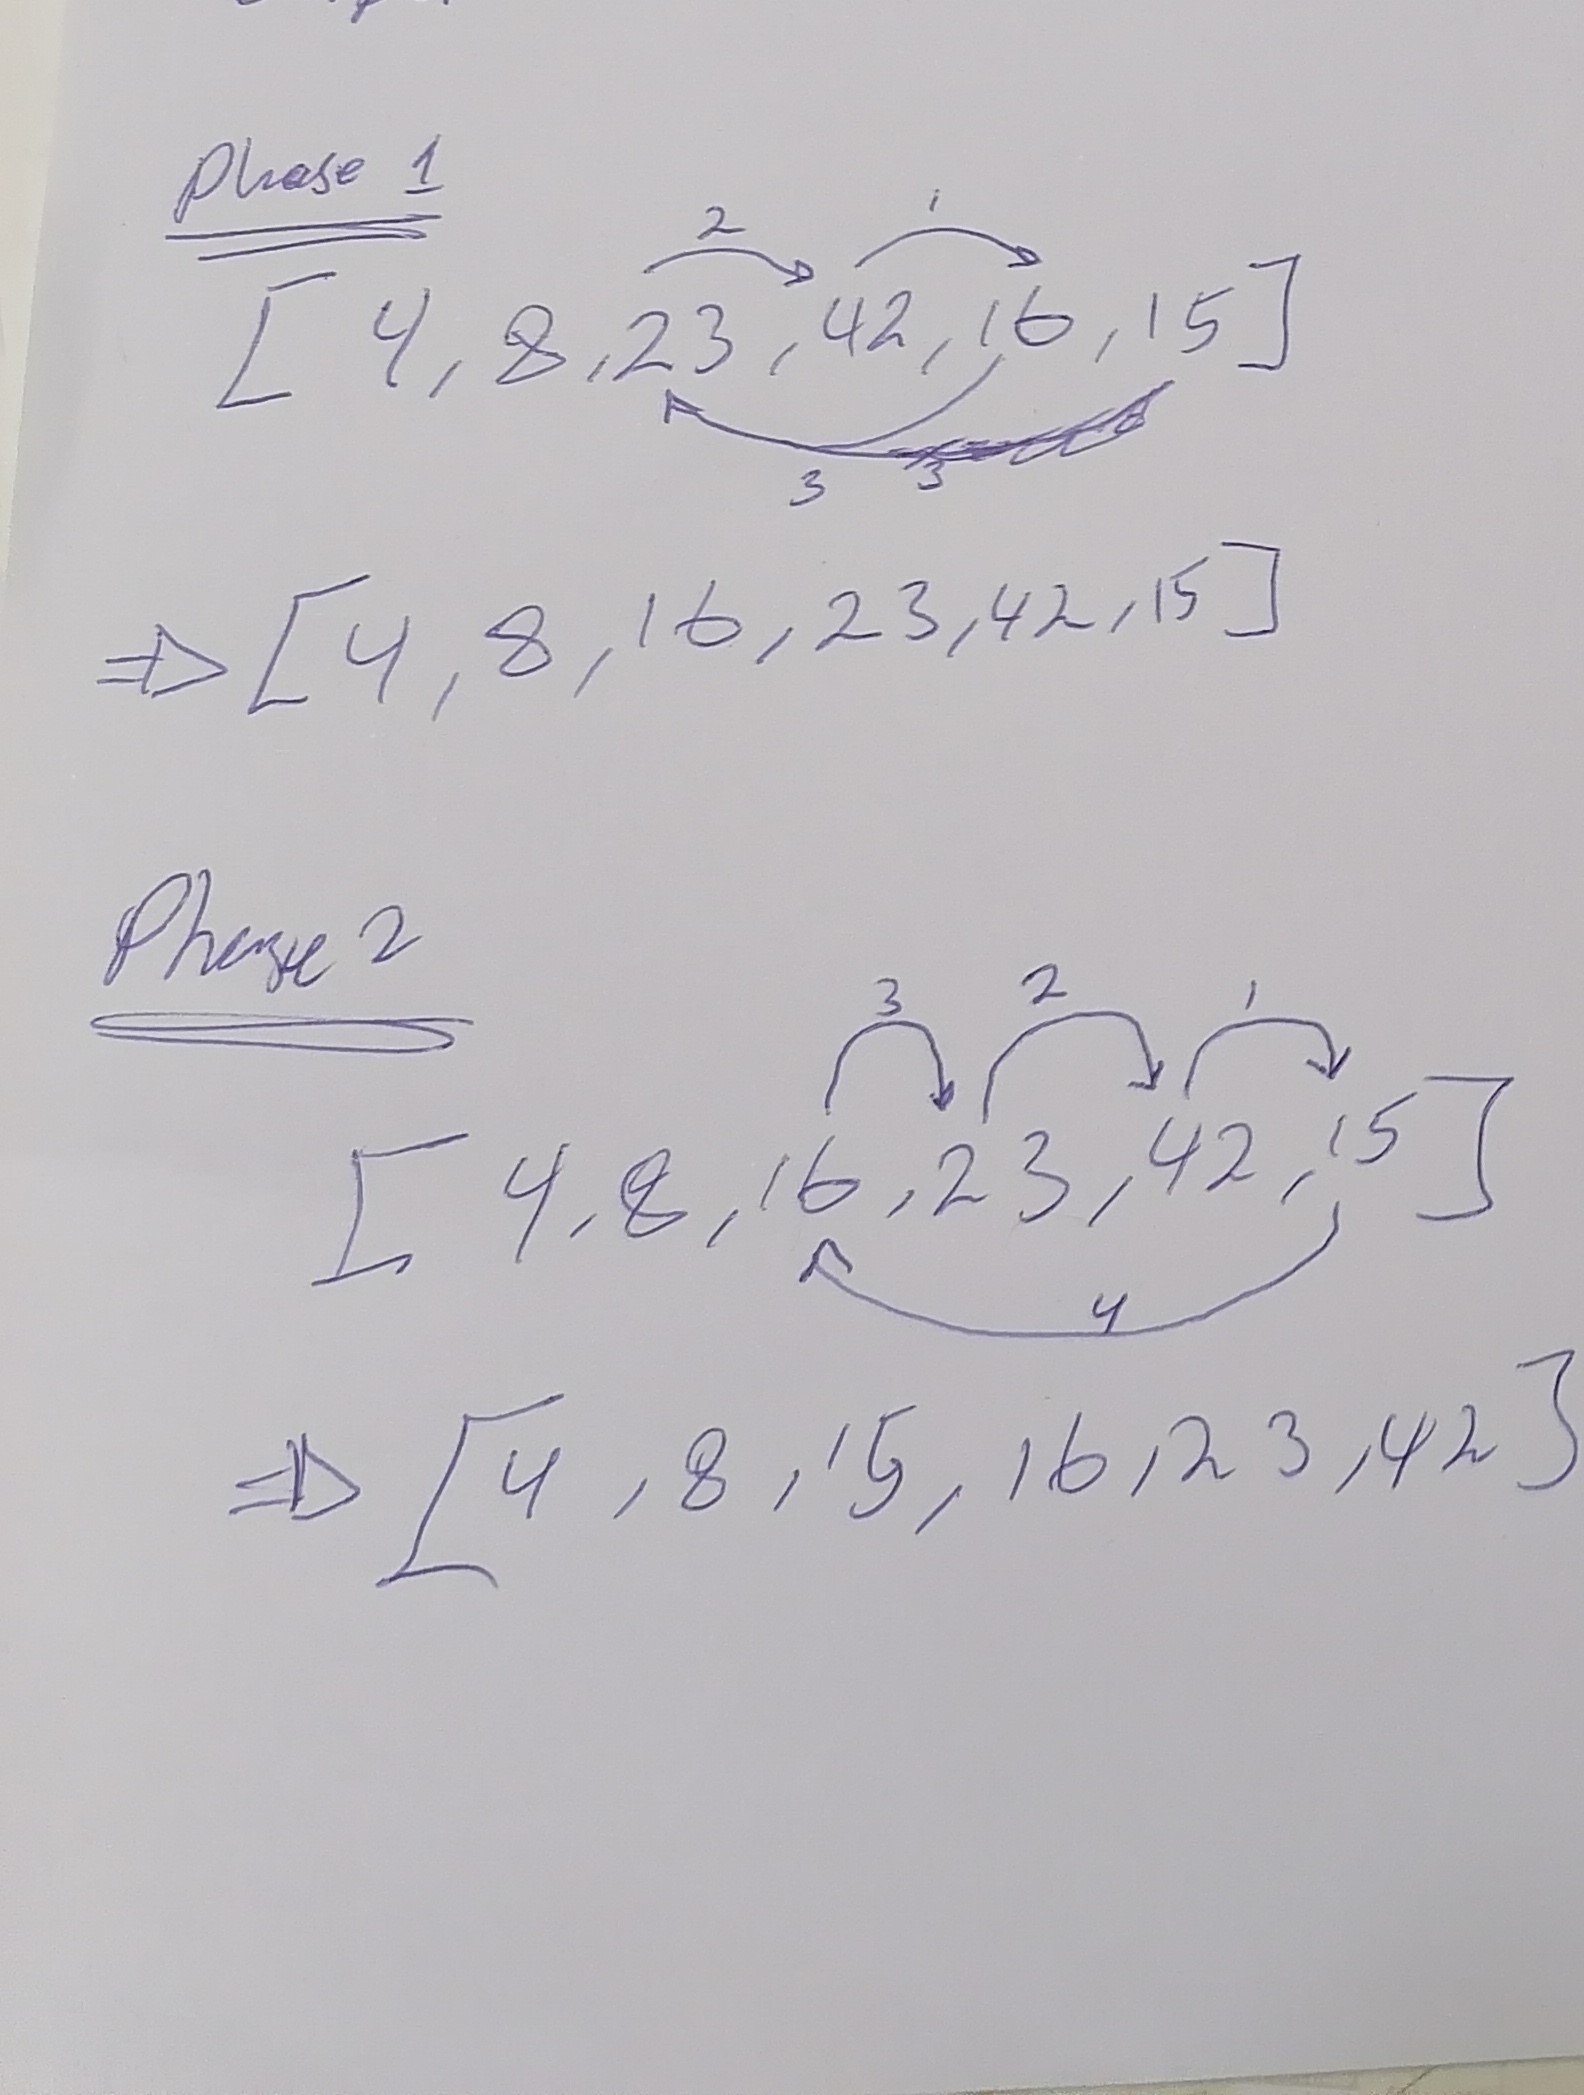 Phase 1
2 1
[4, 8, 23, 42, 16, 15]
3 3
⇒ [4, 8, 16, 23, 42, 15]
Phase 2
3 2 1
[4, 8, 16, 23, 42, 15]
4
⇒ [4, 8, 15, 16, 23, 42]